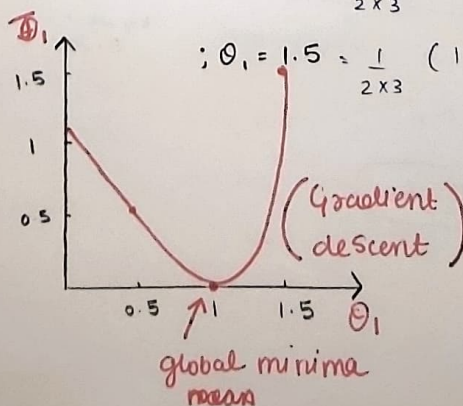 2 x 3
; θ₁ = 1.5 = 1 / 2 x 3 ( 1
θ₁
1.5
1
0.5
0.5 1 1.5 θ₁
(Gradient
descent)
global minima
mean